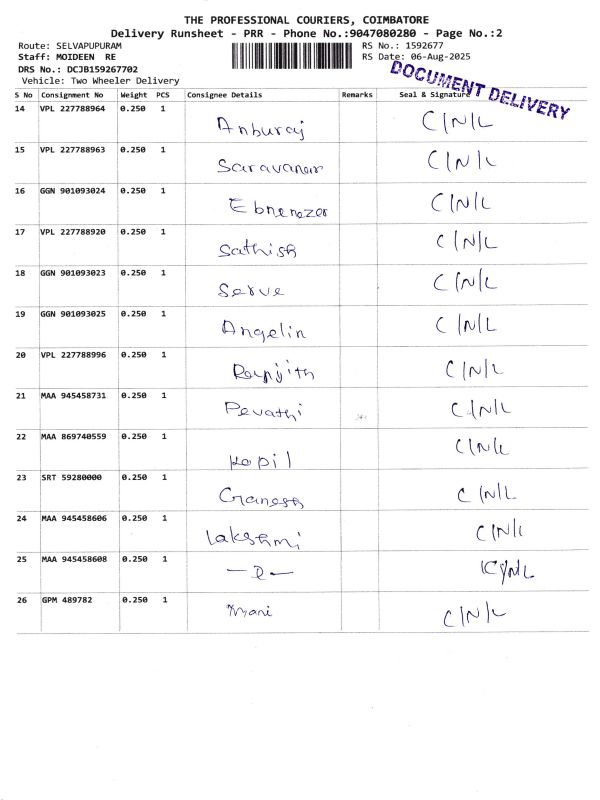 THE PROFESSIONAL COURIERS, COIMBATORE
Delivery Runsheet - PRR - Phone No.:9047080280 - Page No.:2
Route: SELVAPUPURAM RS No.: 1592677
Staff: MOIDEEN RE RS Date: 06-Aug-2025
DRS No.: DCJB159267702
Vehicle: Two Wheeler Delivery
DOCUMENT DELIVERY
S No Consignment No Weight PCS Consignee Details Remarks Seal & Signature
14 VPL 227788964 0.250 1 Anburaj C/N/L
15 VPL 227788963 0.250 1 Saravanan C/N/L
16 GGN 901093024 0.250 1 Ebnenezer C/N/L
17 VPL 227788920 0.250 1 Sathish C/N/L
18 GGN 901093023 0.250 1 Serve C/N/L
19 GGN 901093025 0.250 1 Angelin C/N/L
20 VPL 227788996 0.250 1 Ranjith C/N/L
21 MAA 945458731 0.250 1 Pevathi C/N/L
22 MAA 869740559 0.250 1 Kapil C/N/L
23 SRT 59280000 0.250 1 Ganesh C/N/L
24 MAA 945458606 0.250 1 Lakshmi C/N/L
25 MAA 945458608 0.250 1 C/N/L
26 GPM 489782 0.250 1 Mani C/N/L